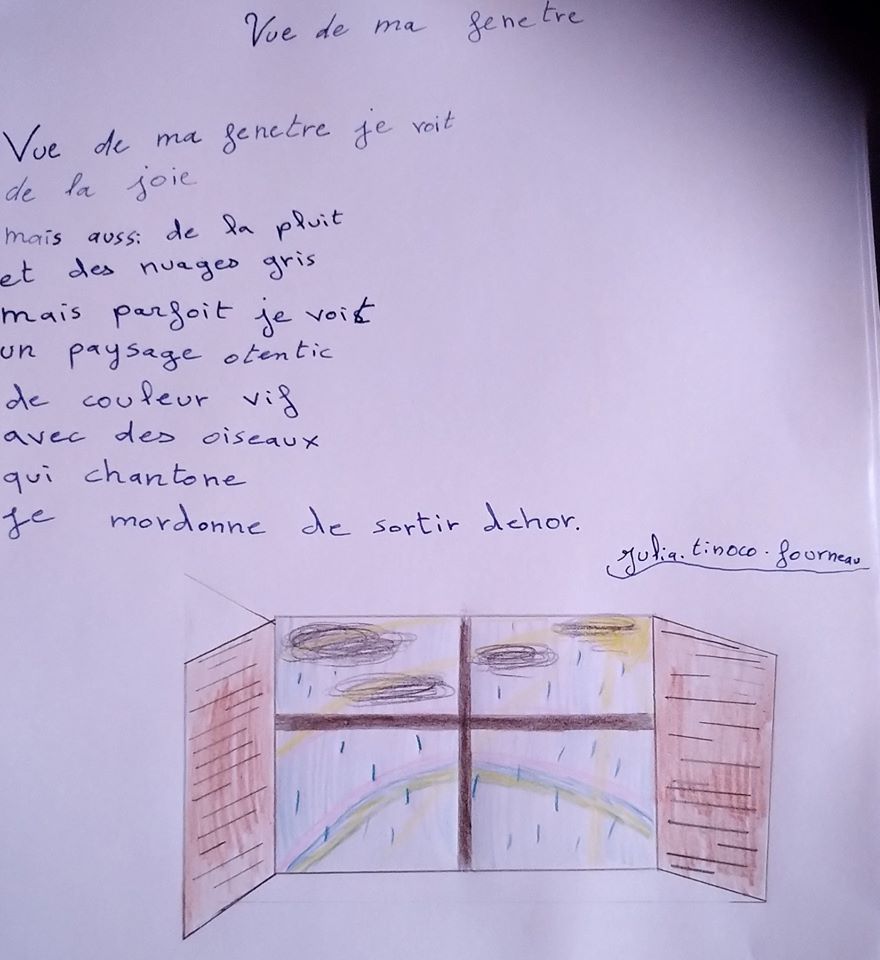 Vue de ma fenetre
Vue de ma fenetre je voit
de la joie
mais aussi de la pluit
et des nuages gris
mais parfoit je voit
un paysage otentic
de couleur vif
avec des oiseaux
qui chantone
je mordonne de sortir dehor.
Julia.tinoco.fourneau